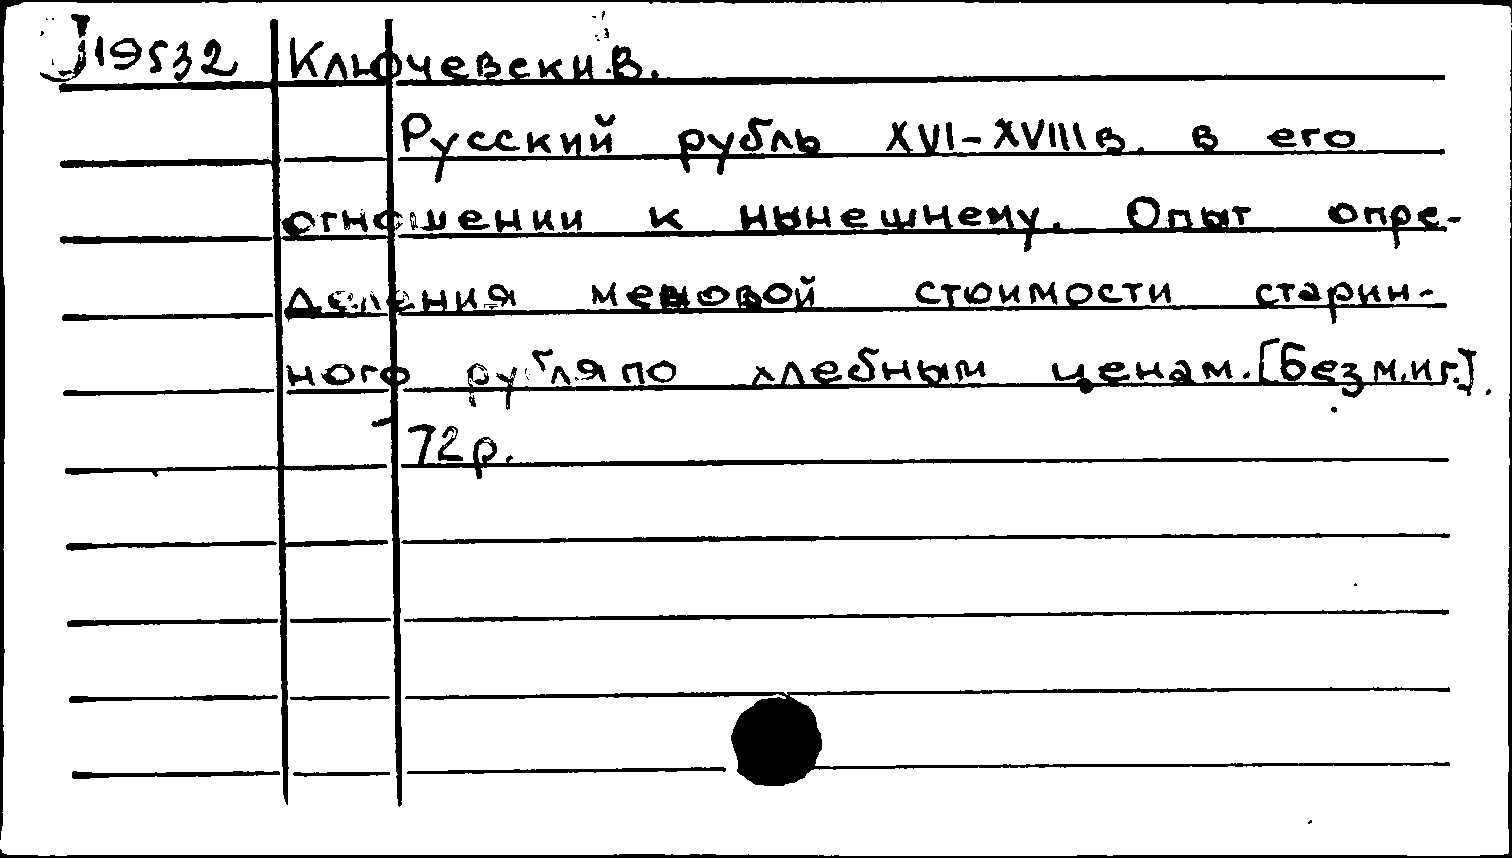 J19532 Ключевски В.
Русский рубль XVI-XVIII в. в его
отношении к нынешнему. Опыт опре-
деления меновой стоимости старин-
ного рубля по хлебным ценам. [Без м. и г.].
72 р.